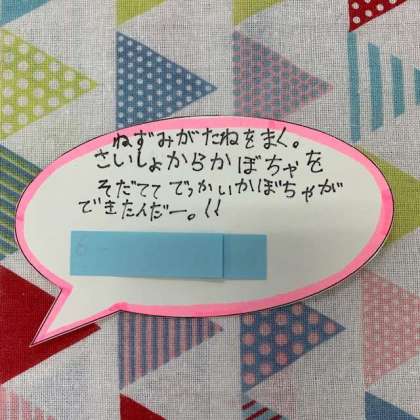 ねずみがたねをまく。
さいしょからかぼちゃを
そだてて でっかいかぼちゃが
できたんだー。!!